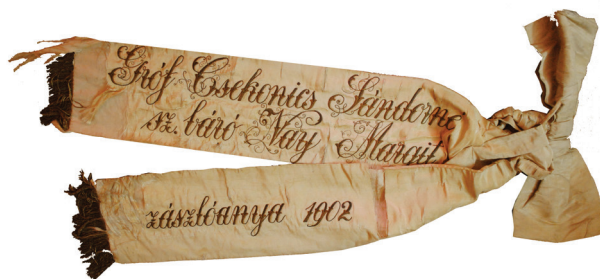 Gróf Csekonics Sándorné
sz. báró Vay Margit
zászlóanya 1902